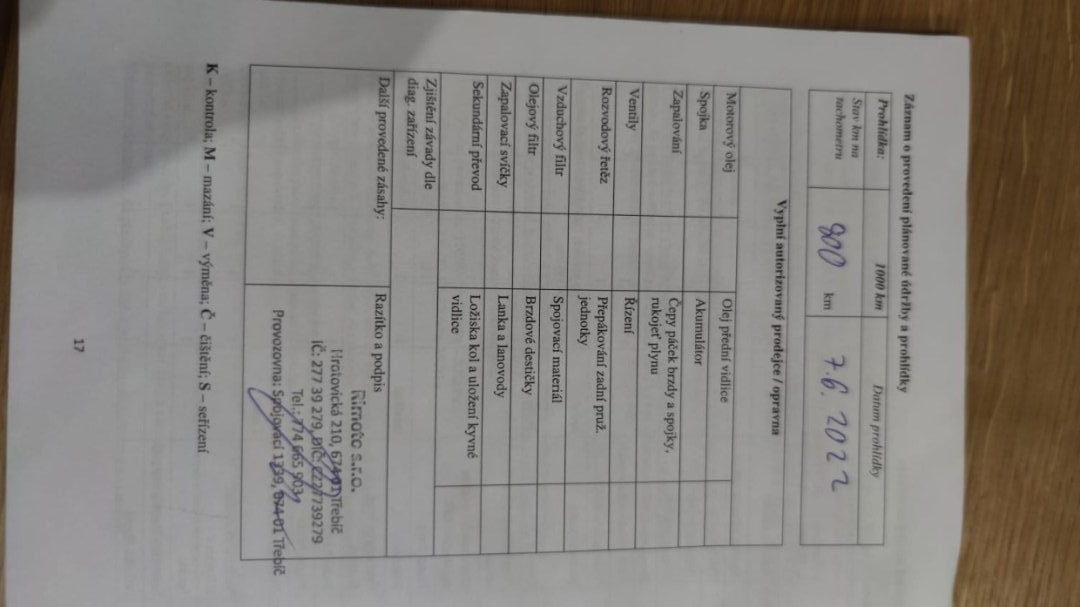 Záznam o provedení plánované údržby a prohlídky
Prohlídka: 1000 km Datum prohlídky
Stav km na tachometru 900 km 7.6. 2022
Vyplní autorizovaný prodejce / opravna
Motorový olej Olej přední vidlice
Spojka Akumulátor
Zapalování Čepy páček brzdy a spojky, rukojeť plynu
Ventily Řízení
Rozvodový řetěz Přepákování zadní pruž. jednotky
Vzduchový filtr Spojovací materiál
Olejový filtr Brzdové destičky
Zapalovací svíčky Lanka a lanovody
Sekundární převod Ložiska kol a uložení kyvné vidlice
Zjištění závady dle diag. zařízení
Další provedené zásahy: Razítko a podpis
Rimoto s.r.o.
210, 674 01 Třebíč
IČ: 277 39 279, DIČ: CZ27739279
Tel.: 774 665 903
Provozovna: Spojovací 1339, 674 01 Třebíč
K – kontrola; M – mazání; V – výměna; Č – čištění; S – seřízení
17